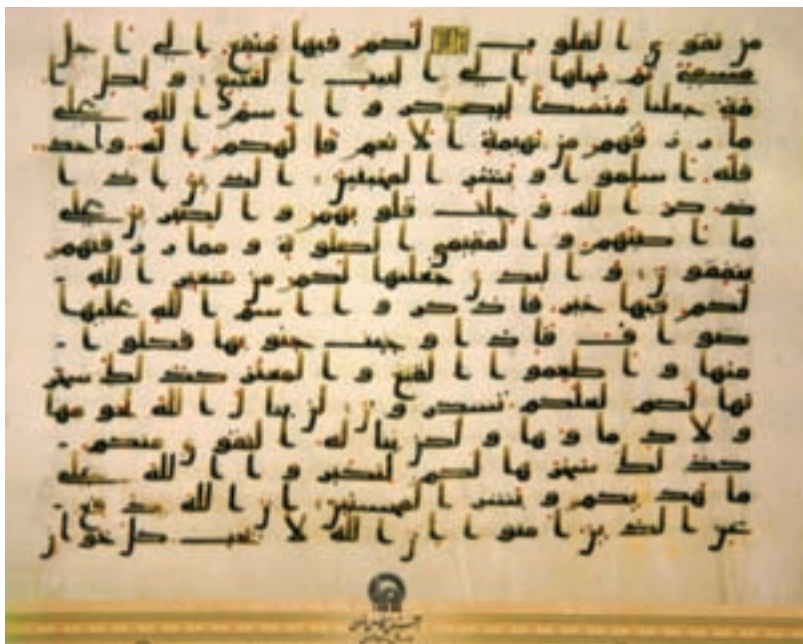 من تقوى القلوب لكم فيها منفع الى اجل
مسمى ثم محلها الى البيت العتيق و لكل ا
مة جعلنا منسكا ليذكروا اسم الله على
ما رزقهم من بهيمة الانعم فالهكم اله وحد
فله اسلموا و بشر المخبتين الذين اذا
ذكر الله وجلت قلوبهم و الصبرين على
ما اصابهم و المقيمى الصلوة و مما رزقنهم
ينفقون و البدن جعلنها لكم من شعئر الله
لكم فيها خير فاذكروا اسم الله عليها
صواف فاذا وجبت جنوبها فكلوا
منها و اطعموا القنع و المعتر كذلك سخر
نها لكم لعلكم تشكرون لن ينال الله لحومها
و لا دماوها و لكن يناله التقوى منكم
كذلك سخرها لكم لتكبروا الله على
ما هديكم و بشر المحسنين ان الله يدفع
عن الذين امنوا ان الله لا يحب كل خوان